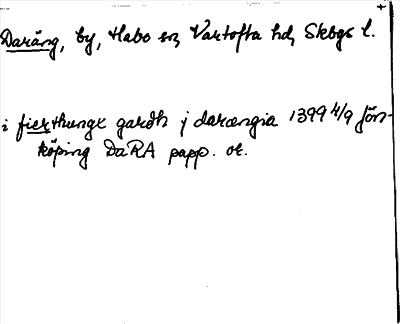 Daräng, by, Habo sn, Vartofta hd, Skbgs l.
i fierthungx gardh j darængia 1399 4/9 Jön-
köping DaRA papp. or.